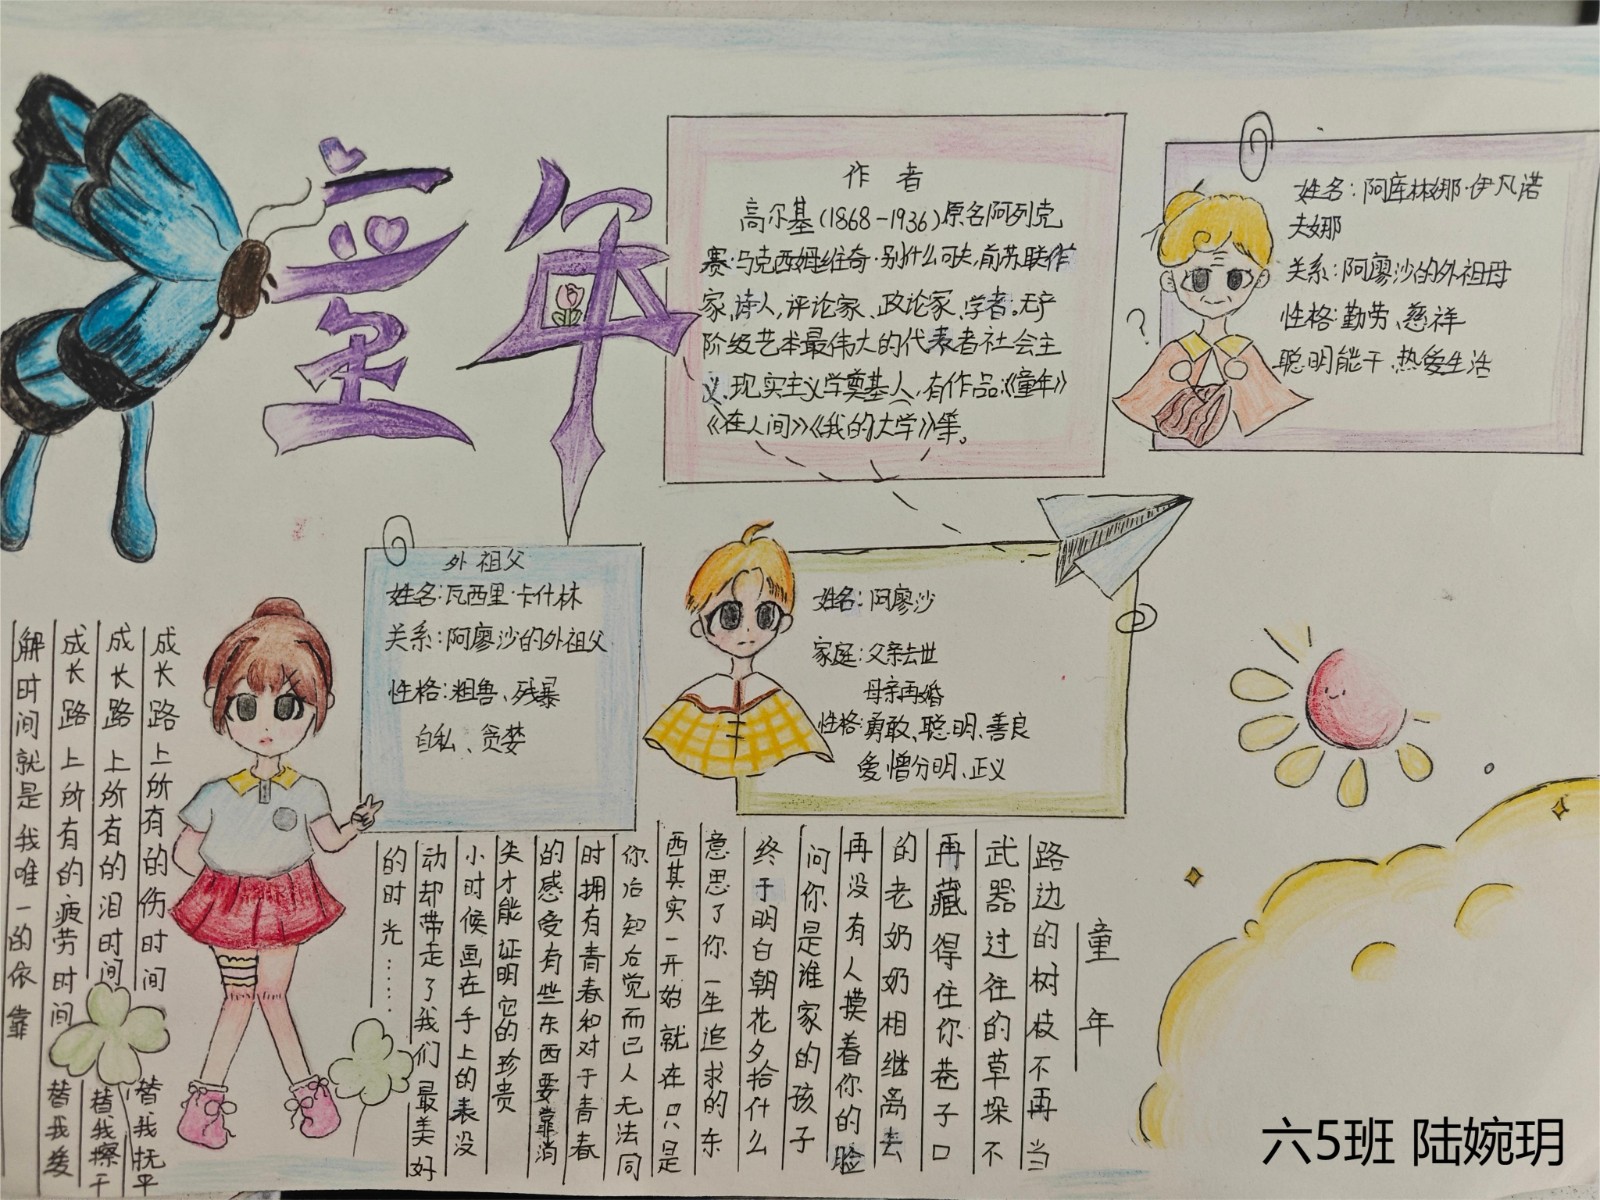 童年
作者
高尔基(1868-1936)原名阿列克
赛·马克西姆维奇·别什么可夫,前苏联作
家,诗人,评论家、政论家、学者。无产
阶级艺术最伟大的代表者社会主
义、现实主义学奠基人,有作品:《童年》
《在人间》《我的大学》等。
姓名:阿库林娜·伊凡诺
夫娜
关系:阿廖沙的外祖母
性格:勤劳、慈祥
聪明能干、热爱生活
外祖父
姓名:瓦西里·卡什林
关系:阿廖沙的外祖父
性格:粗鲁、残暴
自私、贪婪
姓名:阿廖沙
家庭:父亲去世
母亲再婚
性格:勇敢、聪明、善良
爱憎分明、正义
童年
路边的树枝不再当
武器过往的草垛不
再藏得住你巷子口
的老奶奶相继离去
再没有人摸着你的脸
问你是谁家的孩子
终于明白朝花夕拾什么
意思了你一生追求的东
西其实一开始就在只是
你后知后觉而已人无法同
时拥有青春和对于青春
的感受有些东西要靠消
失才能证明它的珍贵
小时候画在手上的表没
动却带走了我们最美好
的时光……
成长路上所有的伤时间替我抚平
成长路上所有的泪时间替我擦干
成长路上所有的疲劳时间替我缓
解时间就是我唯一的依靠
六5班 陆婉玥